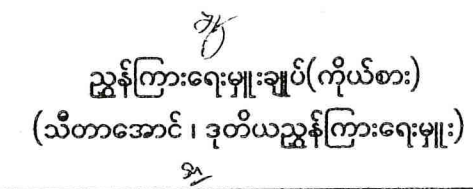 ညွှန်ကြားရေးမှူးချုပ်(ကိုယ်စား)
(သီတာအောင် ၊ ဒုတိယညွှန်ကြားရေးမှူး)